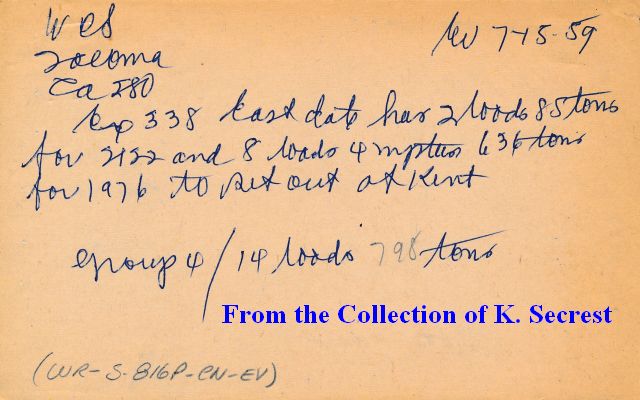 WCS
MV 7-15-59
Tacoma
Ca 280
Exp 338 East date has 2 loads 85 tons
for 2122 and 8 loads 4 mptus 636 tons
for 1976 to set out at Kent
group 4 / 14 loads 798 tons
From the Collection of K. Secrest
(WR-S-816P-CN-EV)